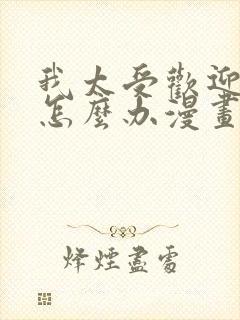 我太受歡迎
怎麼办漫畫
烽煙盡處